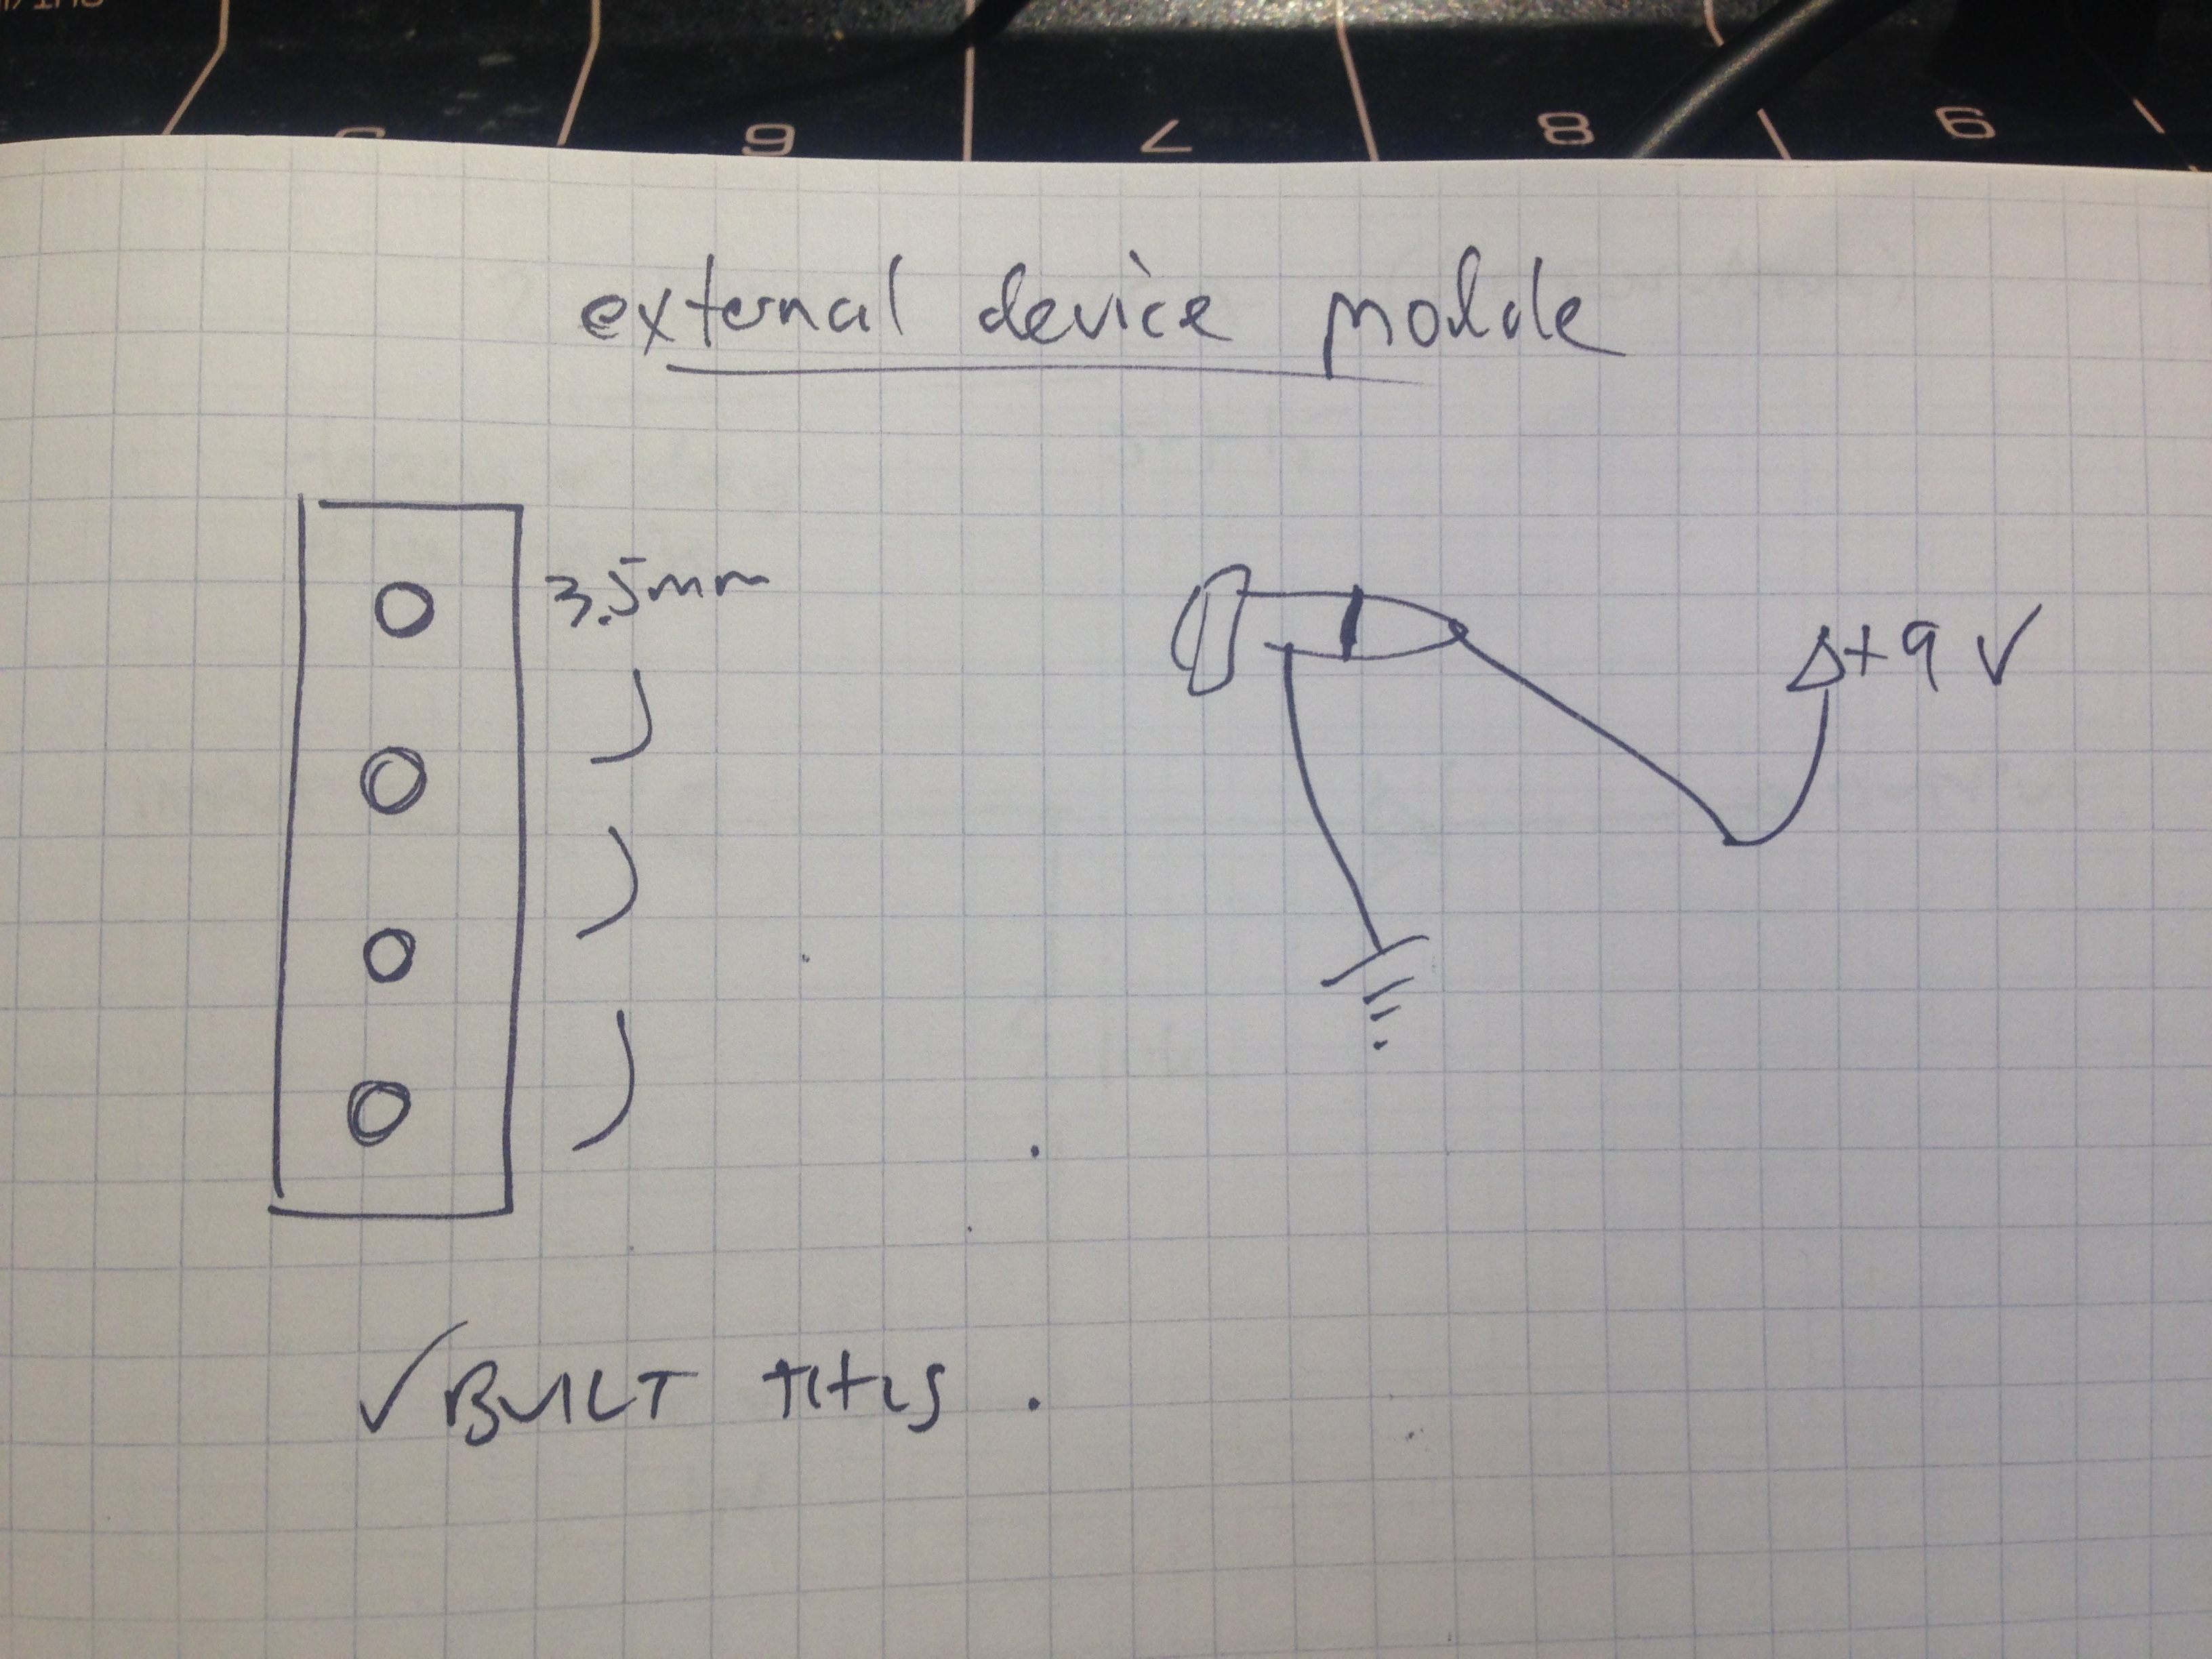 6 7 8 9
external device module
3.5mm
+9V
✓ BUILT this.